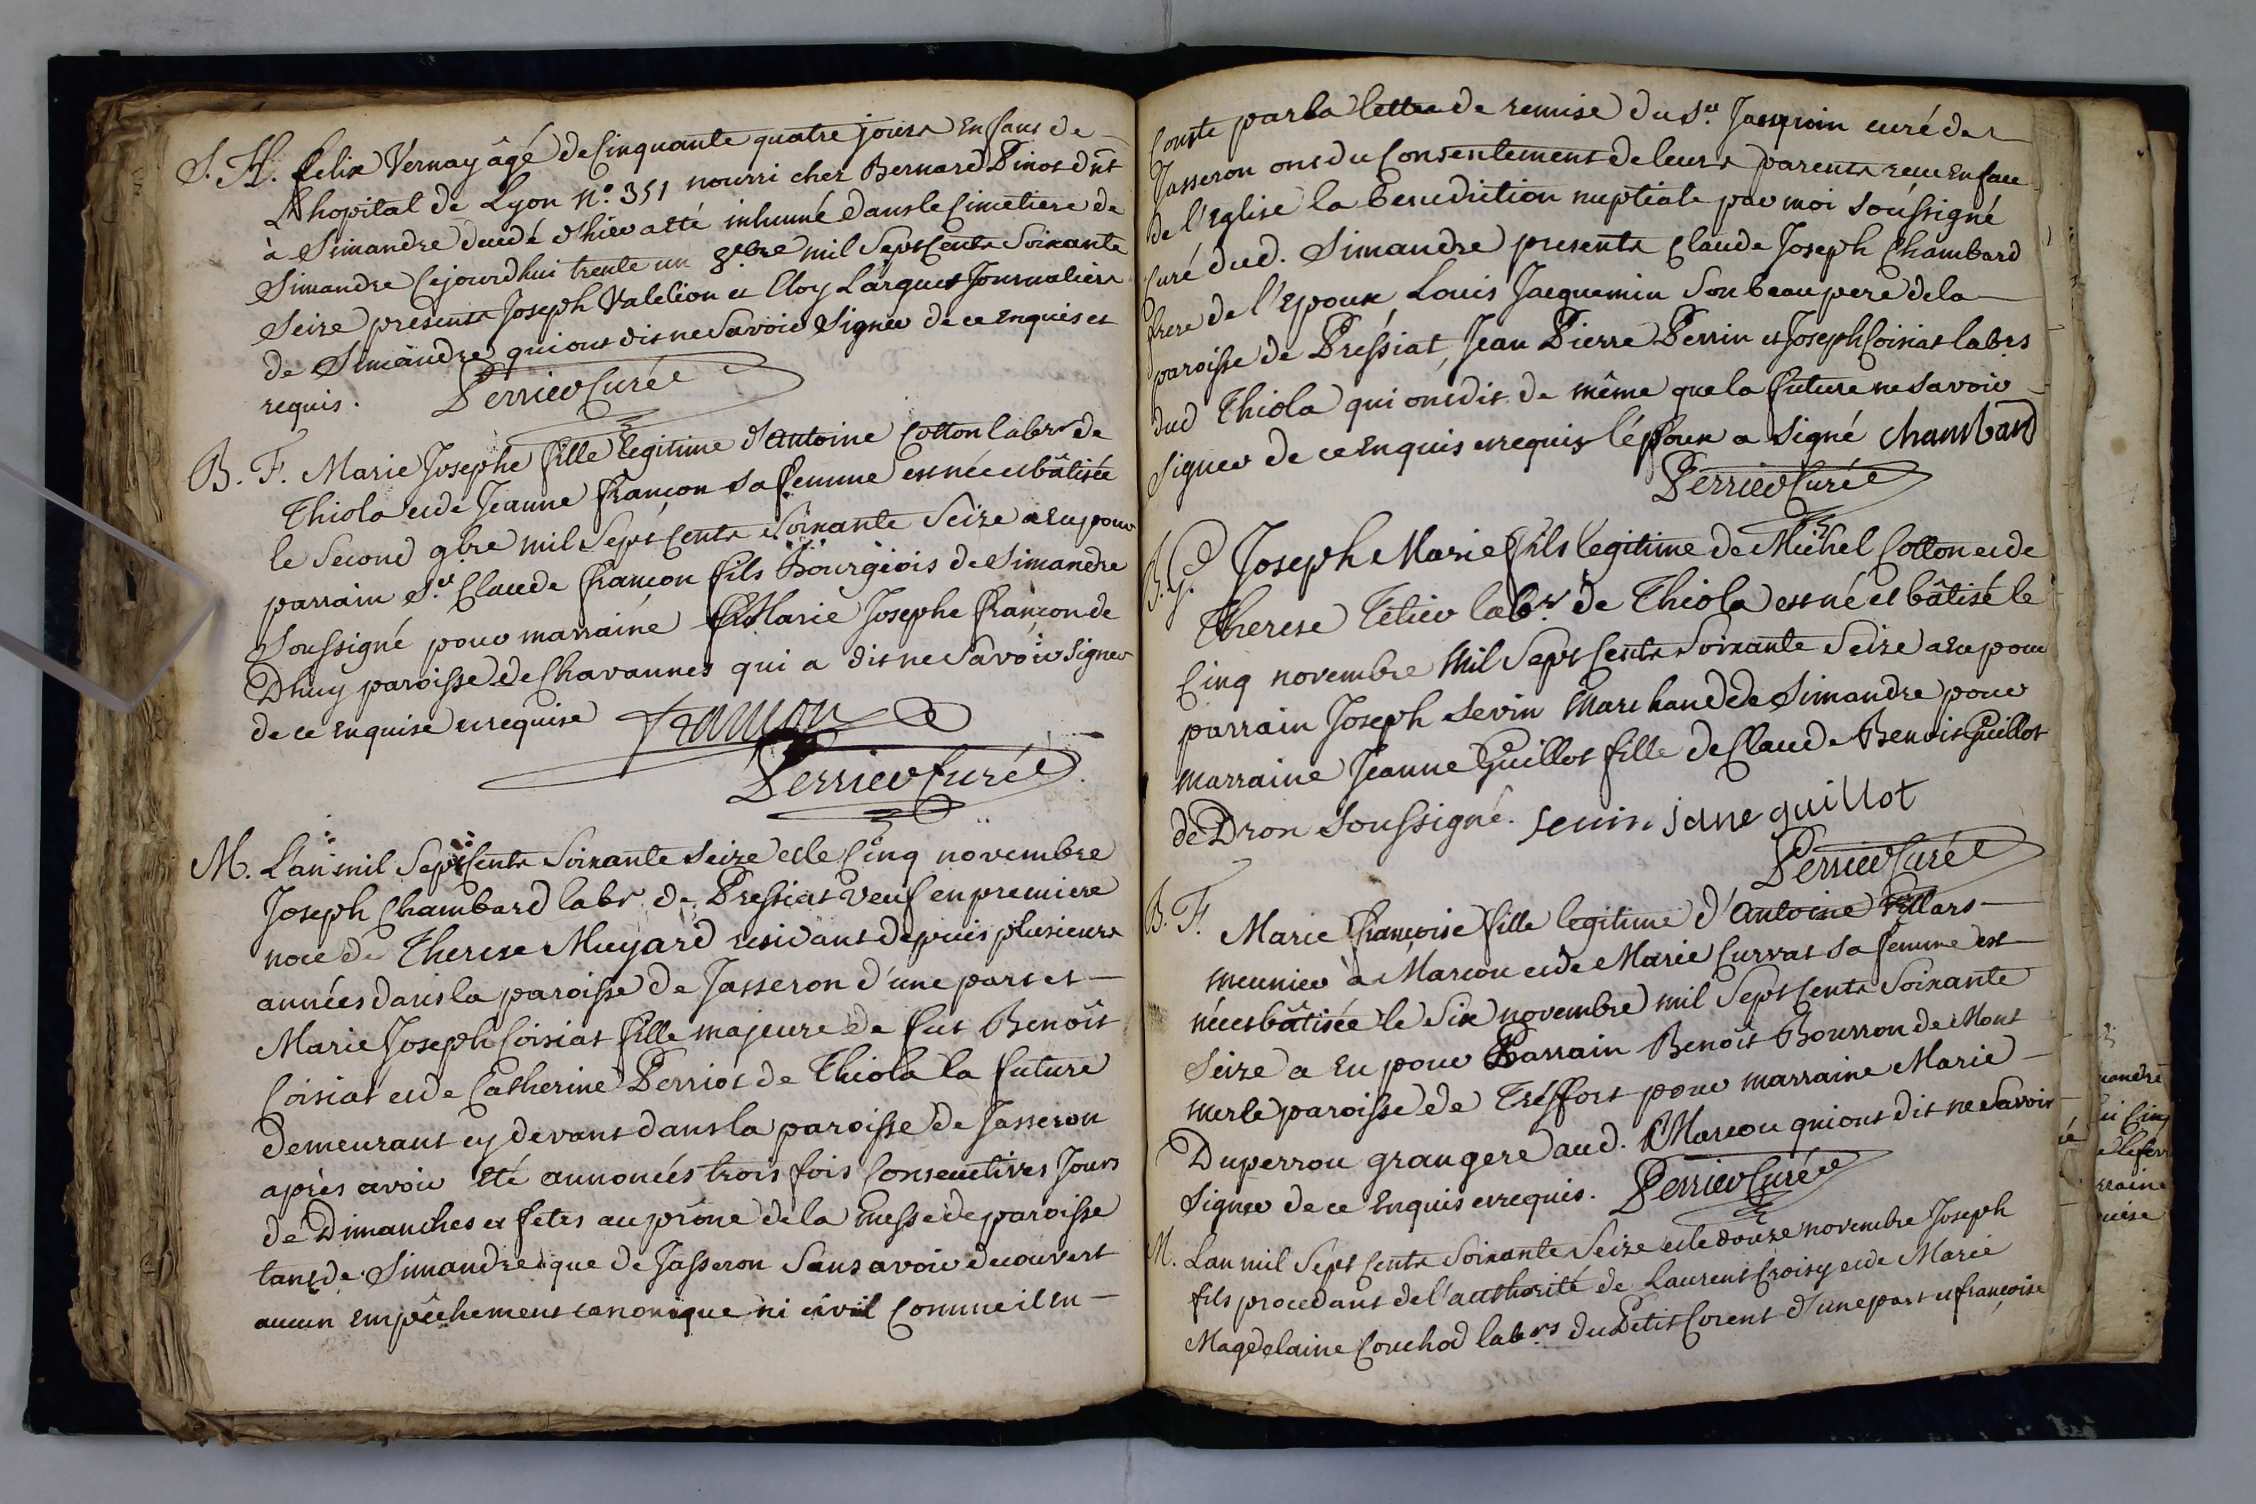 S. H. felix Vernay âgé de Cinquante quatre jours Enfans de
L'hopital de Lyon N.º 351 nourri chez Bernard Pinos dit
à Simandre decedé d'hier a eté inhumé dans le Cimetiere de
Simandre Cejourdhui trente un 8bre mil Sept Cents Soixante
Seize presents Joseph Valelion et Cloy Larguet Journaliers
de Simandre qui ont dit ne Savoir Signer de ce Enquis et
requis. Perrier Curé
B. F. Marie Josephe fille legitime d'Antoine Cotton labr de
Thiola et de Jeanne françon sa femme est née et bâtisée
le Second 9bre mil Sept Cents Soixante Seize a Eu pour
parrain Sr. Claude françon fils Bourgeois de Simandre
Soussigné pour marraine Marie Josephe françon de
Dhuy paroisse de Chavannes qui a dit ne Savoir Signer
de ce Enquise et requise françon
Perrier Curé
M. Lan mil Sept Cents Soixante Seize et le Cinq novembre
Joseph Chambard labr de Pressiat Veuf en premiere
noce de Therese Muyard residant depuis plusieurs
années dans la paroisse de Jasseron d'une part et
Marie Joseph Coisiat fille majeure de fut Benoît
Coisiat et de Catherine Perriot de Thiola la future
demeurant cy devant dans la paroisse de Jasseron
après avoir Eté annoncés trois fois Consecutives Jours
de Dimanches et fetes au prône de la Messe de paroisse
tant de Simandre que de Jasseron Sans avoir decouvert
aucun Empêchement canonique ni civil Comme il En
Conste par la lettre de remise du Sr. curé de
Jasseron ont du Consentement de leurs parents recu En face
de l'Eglise la benediction nuptiale par moi Soussigné
Curé dud. Simandre presents Claude Joseph Chambard
frere de l'Epoux Louis Jacquemin Son beau pere de la
paroisse de Pressiat, Jean Pierre Perrin et Joseph Coisiat labrs
dud Thiola qui ont dit de même que la future ne Savoir
Signer de ce Enquis et requis l'époux a Signé Chambard
Perrier Curé
B. G. Joseph Marie fils legitime de Michel Cotton et de
Therese Tetier labr. de Thiola est né et bâtisé le
Cinq novembre Mil Sept Cents Soixante Seize a Eu pour
parrain Joseph Sevin Marchand de Simandre pour
marraine Jeanne Guillot fille de Claude Benoit Guillot
de Dron Soussigné. Sevin jane guillot
Perrier Curé
B. F. Marie françoise fille legitime d'Antoine Villars
meunier à Marcou et de Marie Curvat sa femme est
née et bâtisée le Six novembre mil Sept Cents Soixante
Seize a Eu pour Parrain Benoît Bourron de Mont
merle paroisse de Treffort pour marraine Marie
Duperrou grangere aud. Marcou qui ont dit ne Savoir
Signer de ce Enquis et requis. Perrier Curé
M. Lan mil Sept Cents Soixante Seize et le douze novembre Joseph
fils procedant de l'authorité de Laurent Croisy et de Marie
Magdelaine Couchod labrs du Petit Corent d'une part et françoise